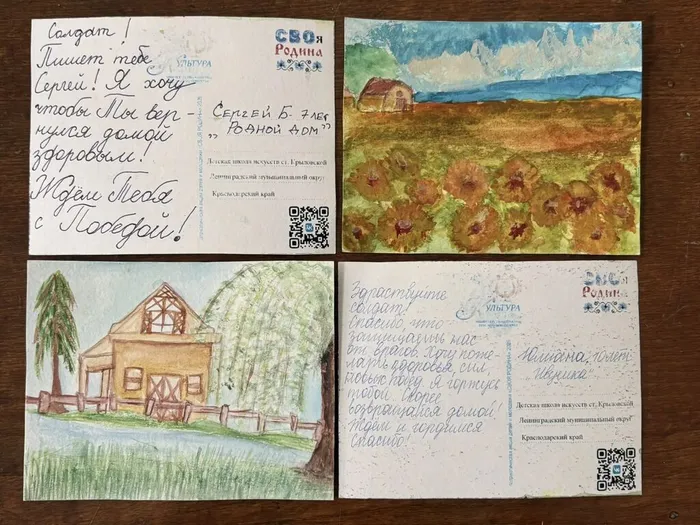 Солдат!
Пишет тебе
Сергей! Я хочу
чтобы Ты вер-
нулся домой
здоровым!
Ждём Тебя
с Победой!
КУЛЬТУРА
СВОя
Родина
Сергей Б. 7 лет
„Родной дом”
Детская школа искусств ст. Крыловской
Ленинградский муниципальный округ
Краснодарский край
Здраствуйте
солдат!
Спасибо, что
защищаешь нас
от врагов. Хочу поже-
лать здоровья, сил
новых побед. Я горжусь
тобой. Скорее
возвращайся домой!
Ждём и гордимся
Спасибо!
КУЛЬТУРА
СВОя
Родина
10 лет
Детская школа искусств ст. Крыловской
Ленинградский муниципальный округ
Краснодарский край